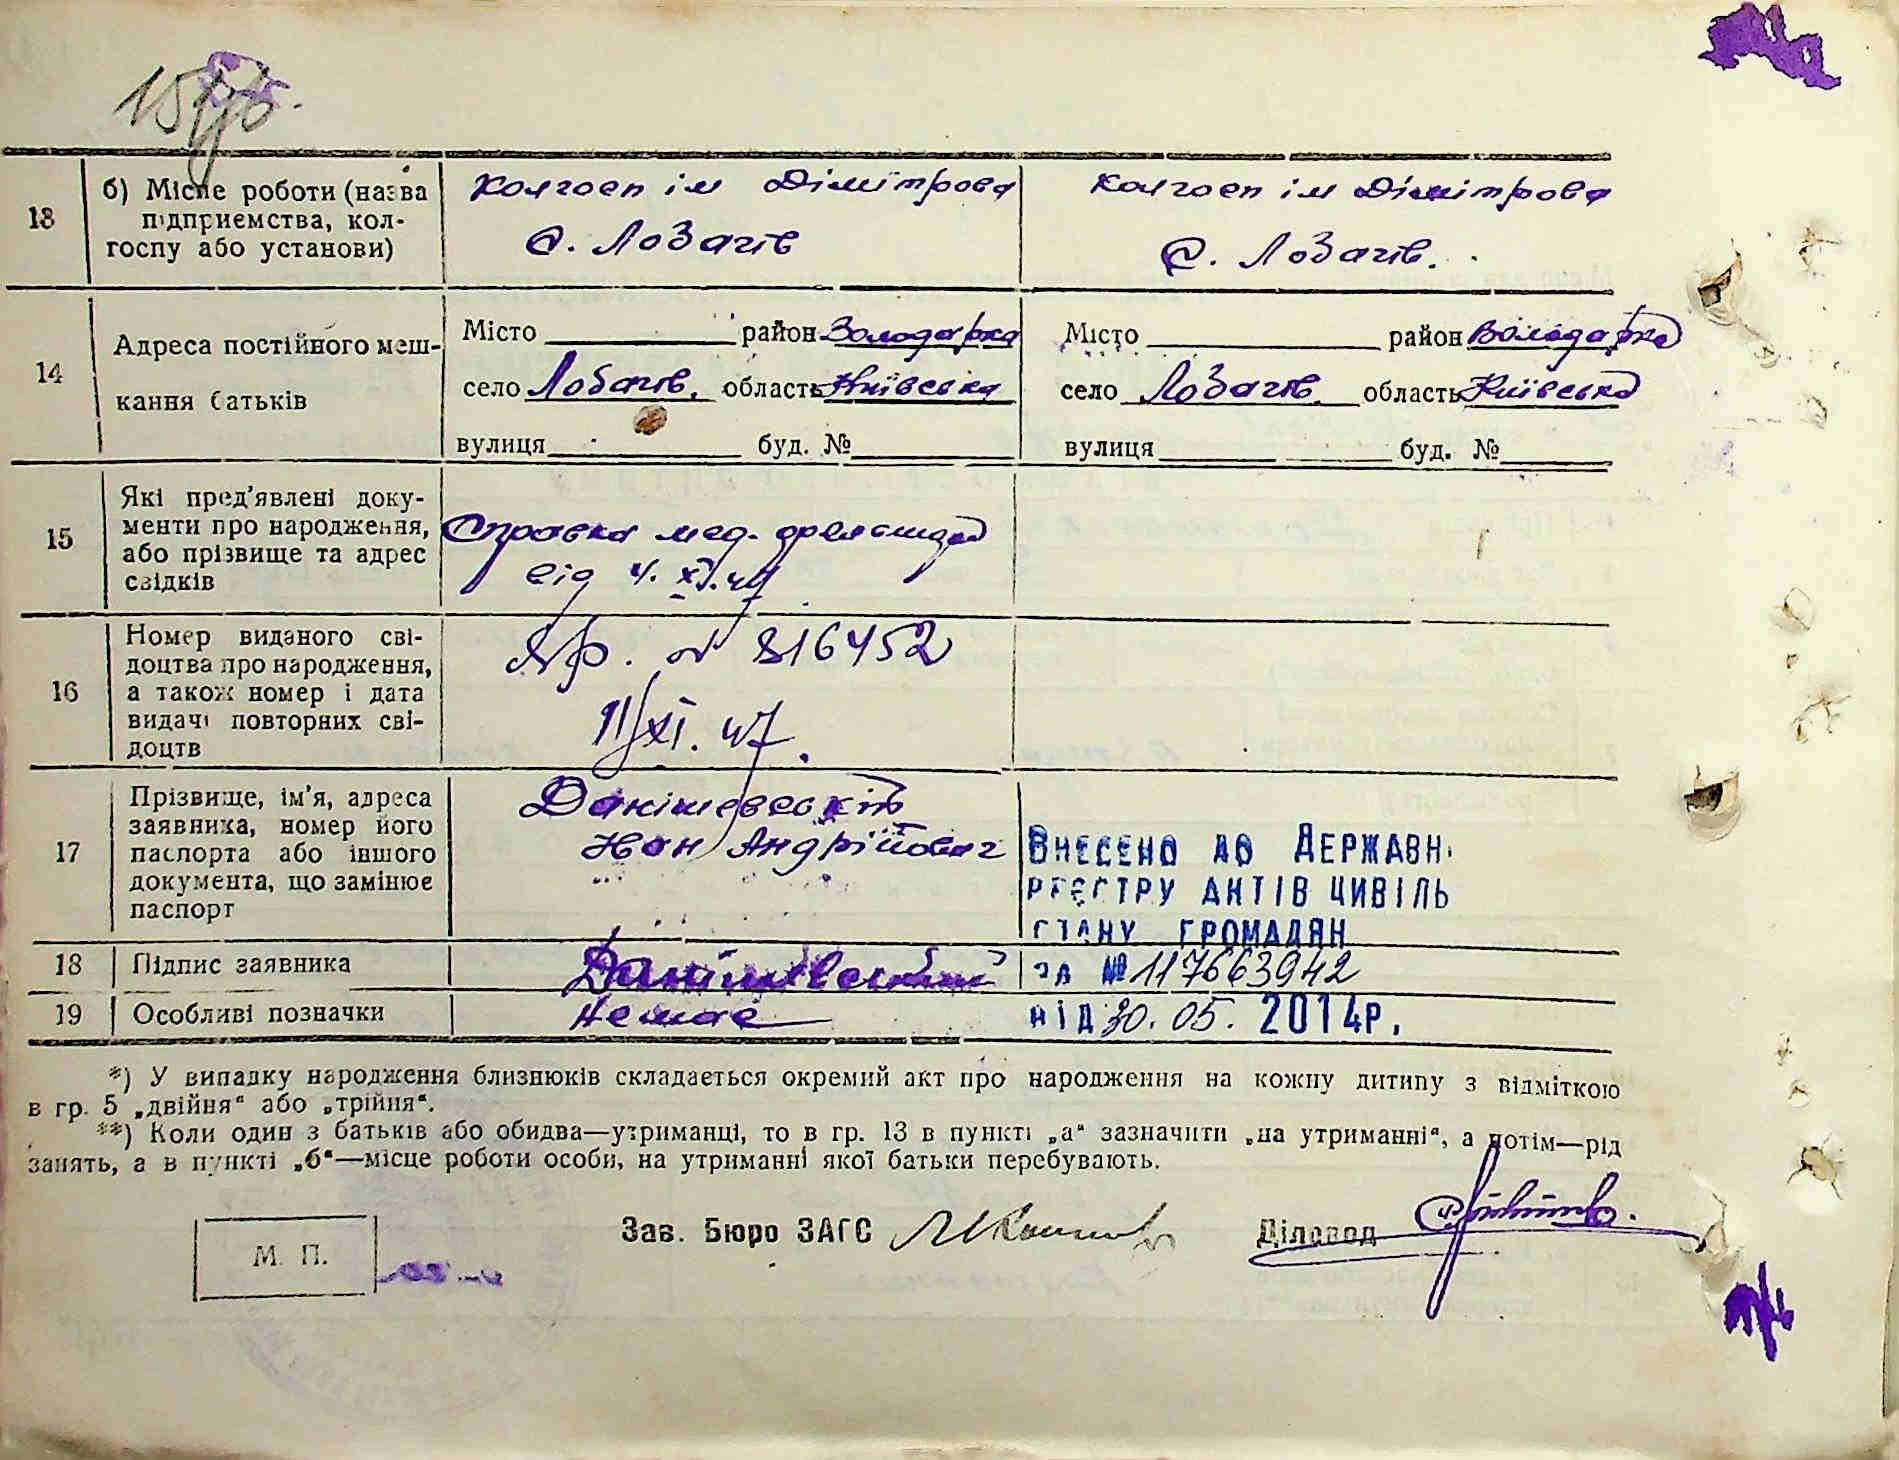 13
б) Місце роботи (назва
підприємства, кол-
госпу або установи)
колгосп ім Дімітрова
с. Лобачів
колгосп ім Дімітрова
с. Лобачів.
14
Адреса постійного меш-
кання батьків
Місто район Володарка
село Лобачів. область Київська
вулиця буд. №
Місто район Володарка
село Лобачів. область Київська
вулиця буд. №
15
Які пред'явлені доку-
менти про народження,
або прізвище та адрес
свідків
Справка мед. фельшера
від 4. XI. 47
16
Номер виданого сві-
доцтва про народження,
а також номер і дата
видачі повторних сві-
доцтв
№ 816452
11/XI. 47.
17
Прізвище, ім'я, адреса
заявника, номер його
паспорта або іншого
документа, що замінює
паспорт
Данішевський
Іван Андрійович
ВНЕСЕНО ДО ДЕРЖАВН
РЕЄСТРУ АКТІВ ЦИВІЛЬ
СТАНУ ГРОМАДЯН
18
Підпис заявника
Данішевський
ЗА № 117663942
19
Особливі позначки
Немає
ВІД 30. 05. 2014Р.
*) У випадку народження близнюків складається окремий акт про народження на кожну дитину з відміткою
в гр. 5 „двійня“ або „трійня“.
**) Коли один з батьків або обидва—утриманці, то в гр. 13 в пункті „а“ зазначити „на утриманні“, а потім—рід
занять, а в пункті „б“—місце роботи особи, на утриманні якої батьки перебувають.
М. П.
Зав. Бюро ЗАГС
Діловод